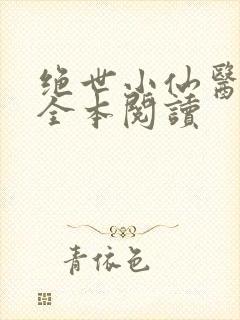 绝世小仙醫
全本閱讀
青依色